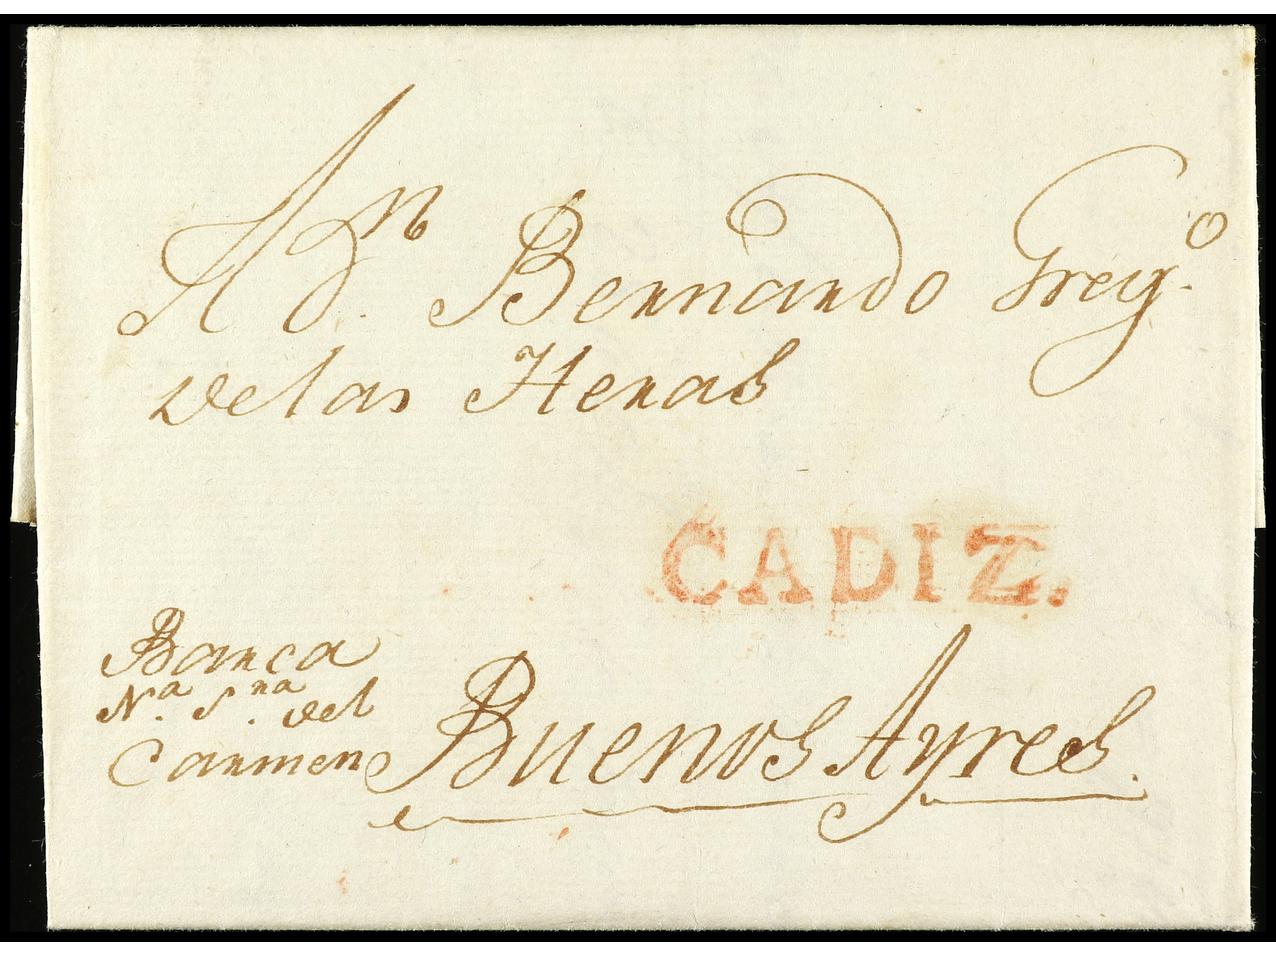 A Dn. Bernardo Grego.
de las Heras
CADIZ.
Barca
Na. Sra. del
Carmen
Buenos Ayres.